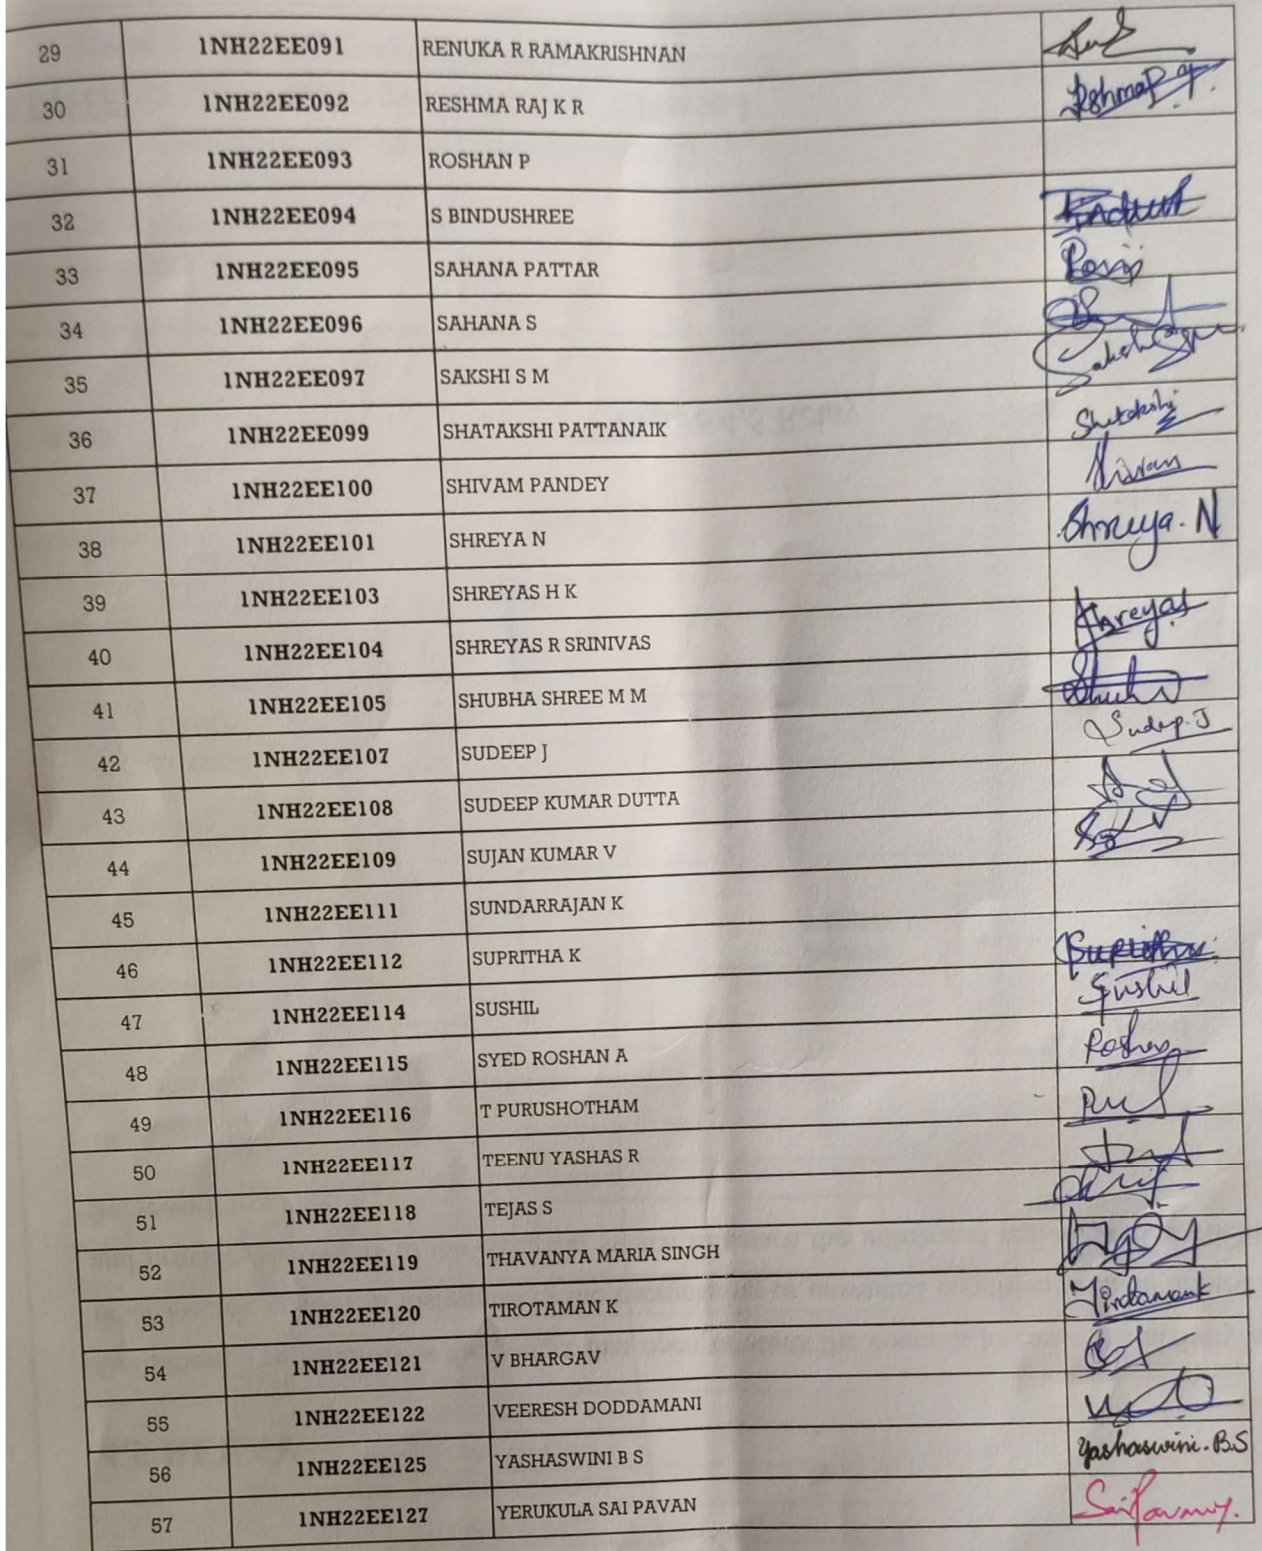 29 1NH22EE091 RENUKA R RAMAKRISHNAN
30 1NH22EE092 RESHMA RAJ K R
31 1NH22EE093 ROSHAN P
32 1NH22EE094 S BINDUSHREE
33 1NH22EE095 SAHANA PATTAR
34 1NH22EE096 SAHANA S
35 1NH22EE097 SAKSHI S M
36 1NH22EE099 SHATAKSHI PATTANAIK Shatakshi
37 1NH22EE100 SHIVAM PANDEY Shivam
38 1NH22EE101 SHREYA N Shreya. N
39 1NH22EE103 SHREYAS H K
40 1NH22EE104 SHREYAS R SRINIVAS Shreyas
41 1NH22EE105 SHUBHA SHREE M M
42 1NH22EE107 SUDEEP J Sudeep. J
43 1NH22EE108 SUDEEP KUMAR DUTTA
44 1NH22EE109 SUJAN KUMAR V
45 1NH22EE111 SUNDARRAJAN K
46 1NH22EE112 SUPRITHA K
47 1NH22EE114 SUSHIL Sushil
48 1NH22EE115 SYED ROSHAN A Roshan
49 1NH22EE116 T PURUSHOTHAM
50 1NH22EE117 TEENU YASHAS R
51 1NH22EE118 TEJAS S
52 1NH22EE119 THAVANYA MARIA SINGH
53 1NH22EE120 TIROTAMAN K
54 1NH22EE121 V BHARGAV
55 1NH22EE122 VEERESH DODDAMANI
56 1NH22EE125 YASHASWINI B S Yashaswini. B.S
57 1NH22EE127 YERUKULA SAI PAVAN